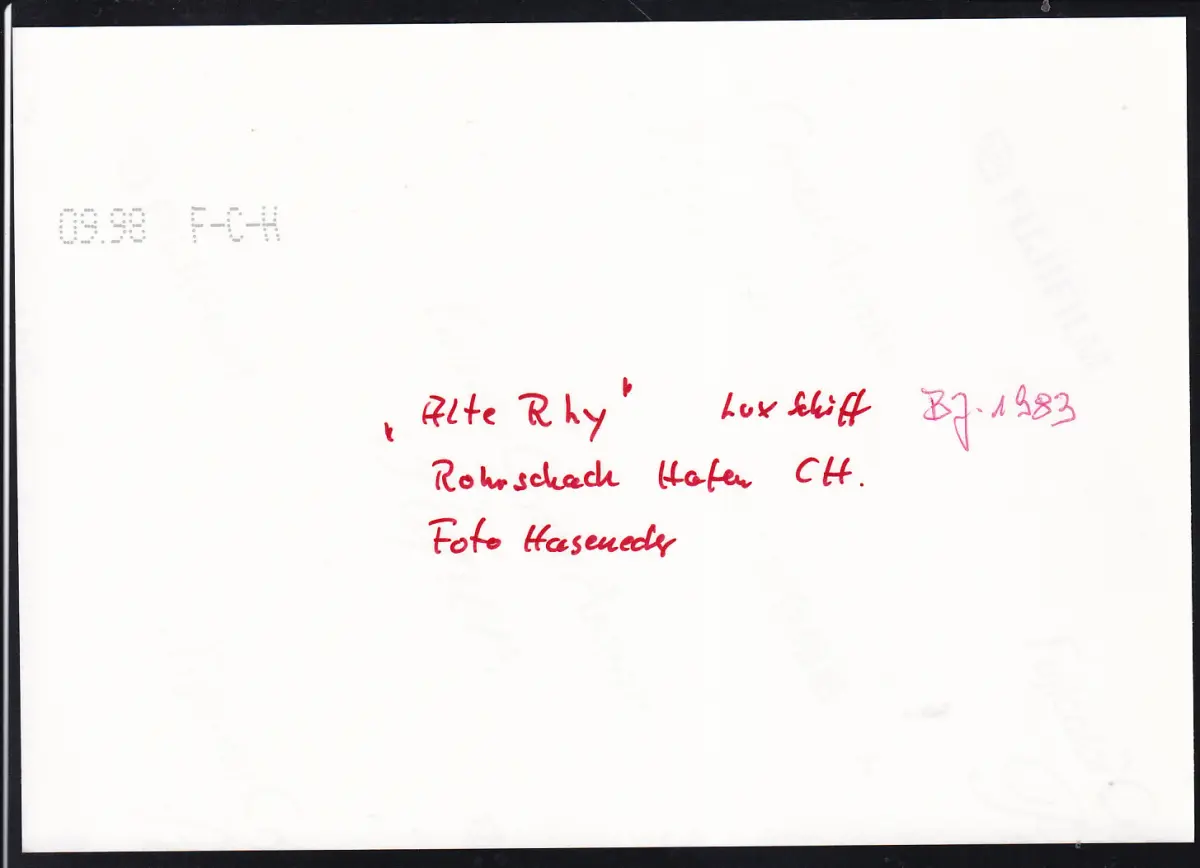 09.98 F-C-H
"Alte Rhy" Lux Schiff BJ. 1983
Rohrschach Hafen CH.
Foto Haseneder